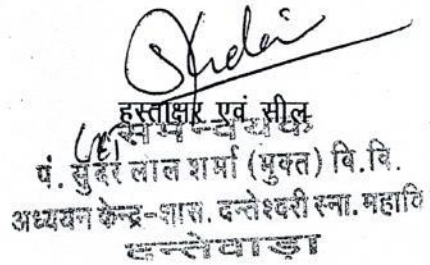 हस्ताक्षर एवं सील
समन्वयक
पं. सुंदर लाल शर्मा (मुक्त) वि.वि.
अध्ययन केन्द्र-शास. दन्तेश्वरी स्ना. महावि
दन्तेवाड़ा